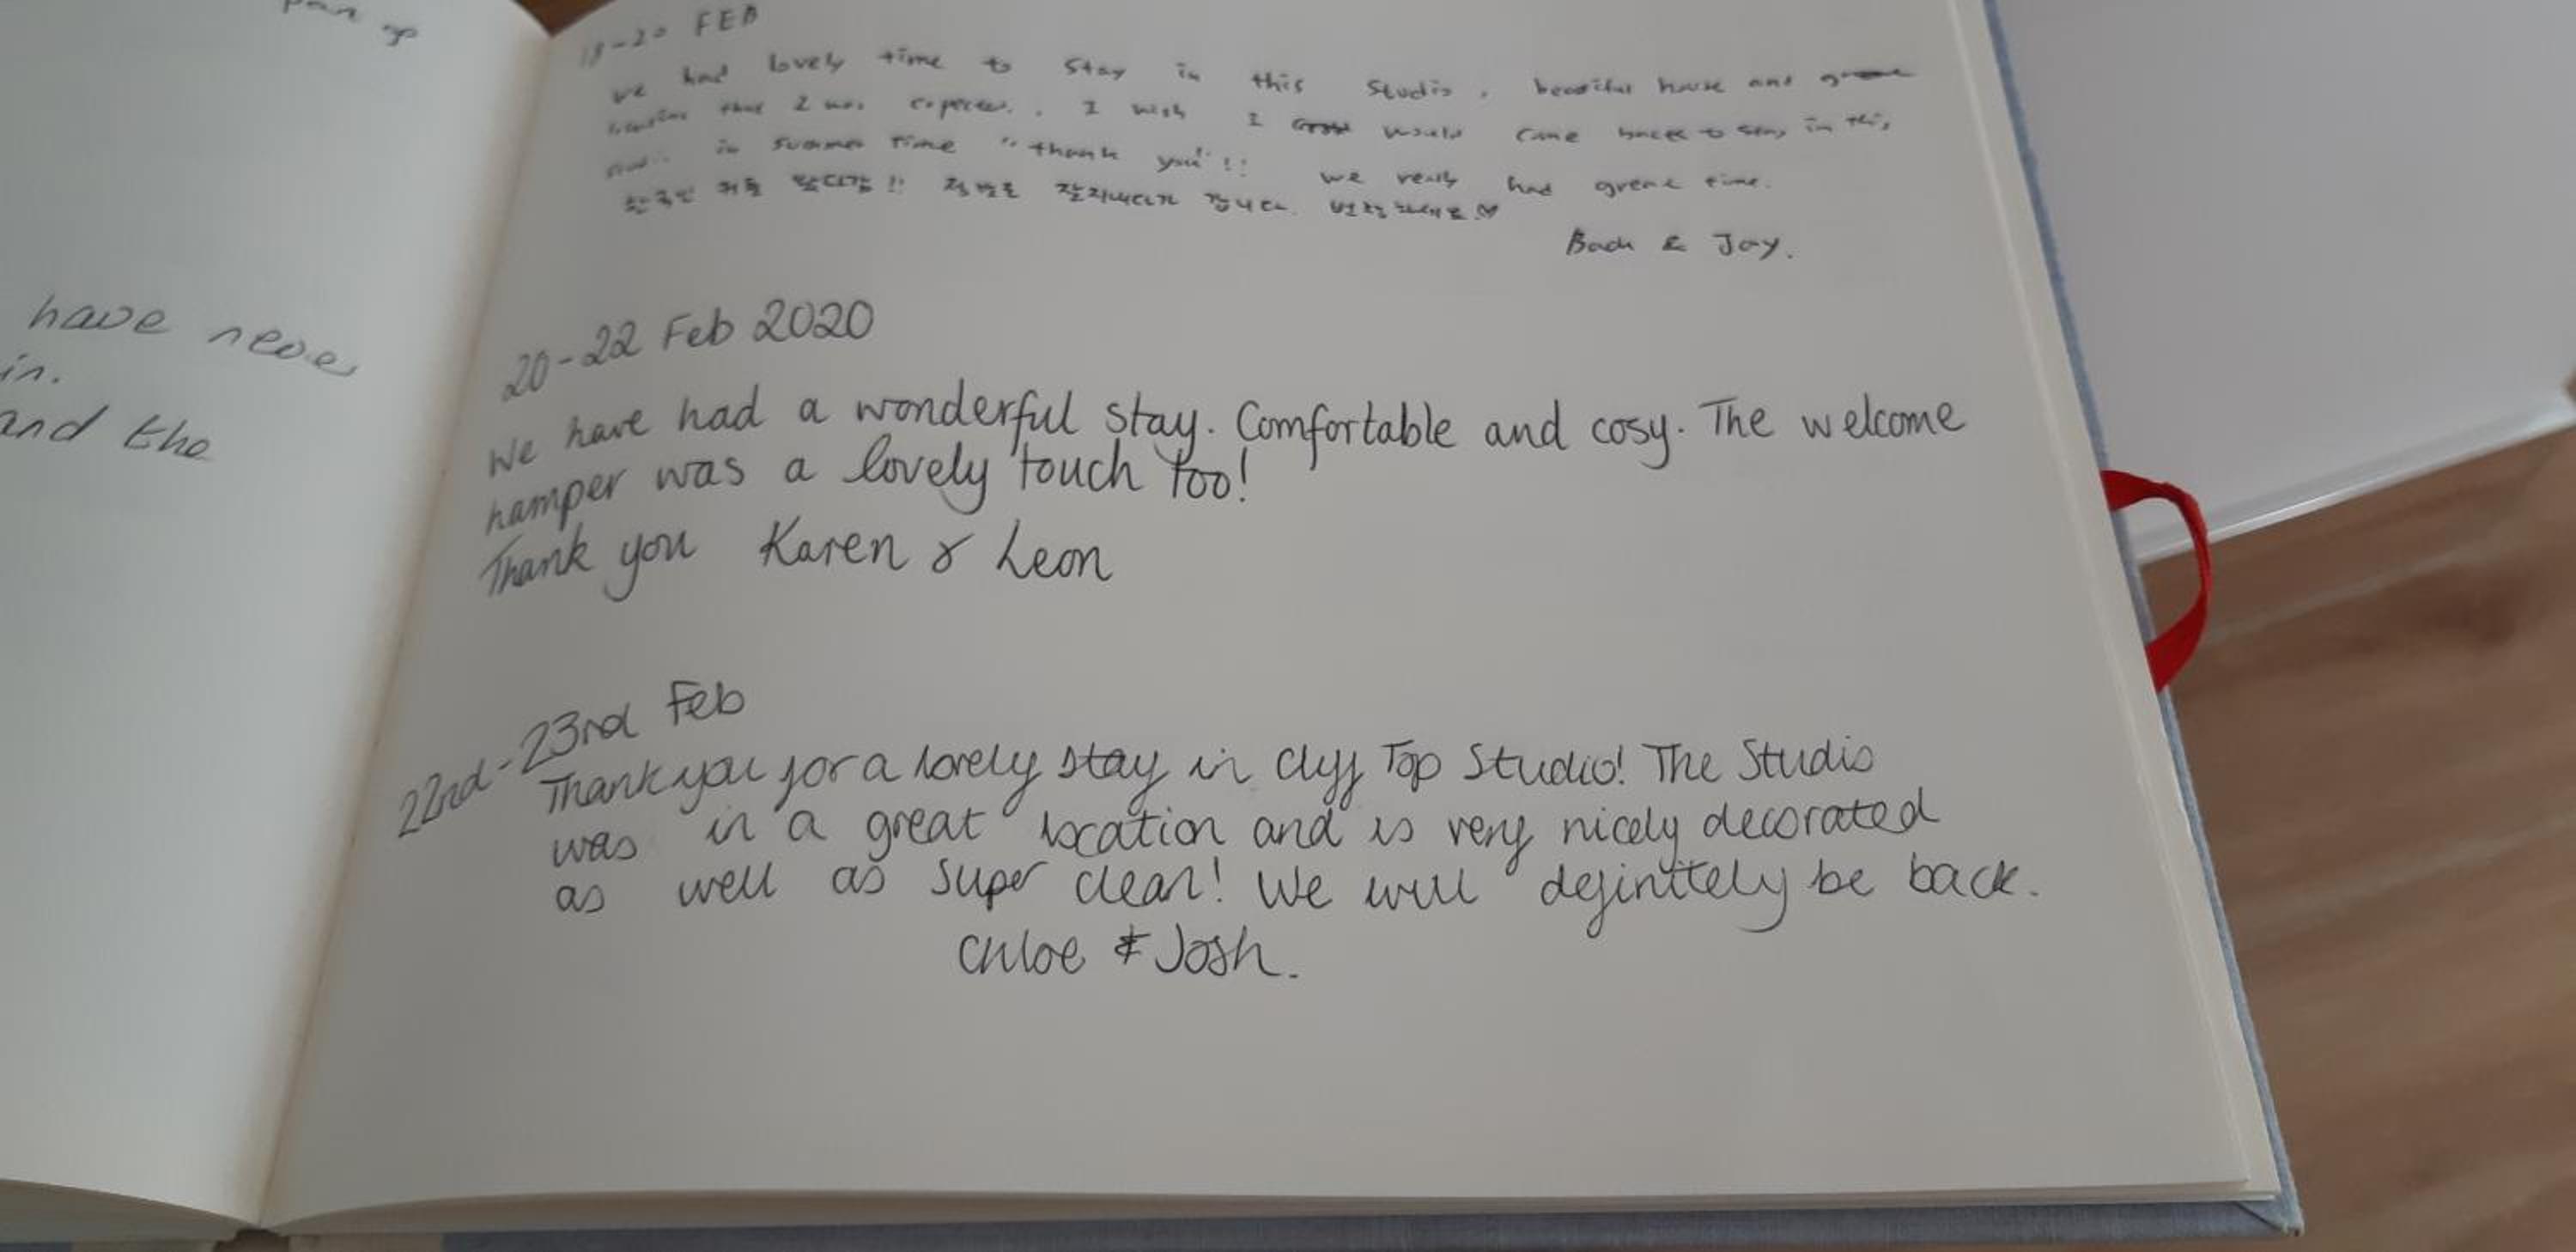 have never
in.
and the
FEB
we had lovely time to stay in this studio. beautiful house and
that I was expected. I wish I would come back to stay in this
in summer time "thank you"!! we really had great time.
한국인 왔다감!! 정말로 잘지내다가 갑니다. ♡
Bach & Jay.
20-22 Feb 2020
We have had a wonderful stay. Comfortable and cosy. The welcome
hamper was a lovely touch too!
Thank you Karen & Leon
22nd-23rd Feb
Thank you for a lovely stay in Cliff Top Studio! The Studio
was in a great location and is very nicely decorated
as well as super clean! We will definitely be back.
Chloe & Josh.